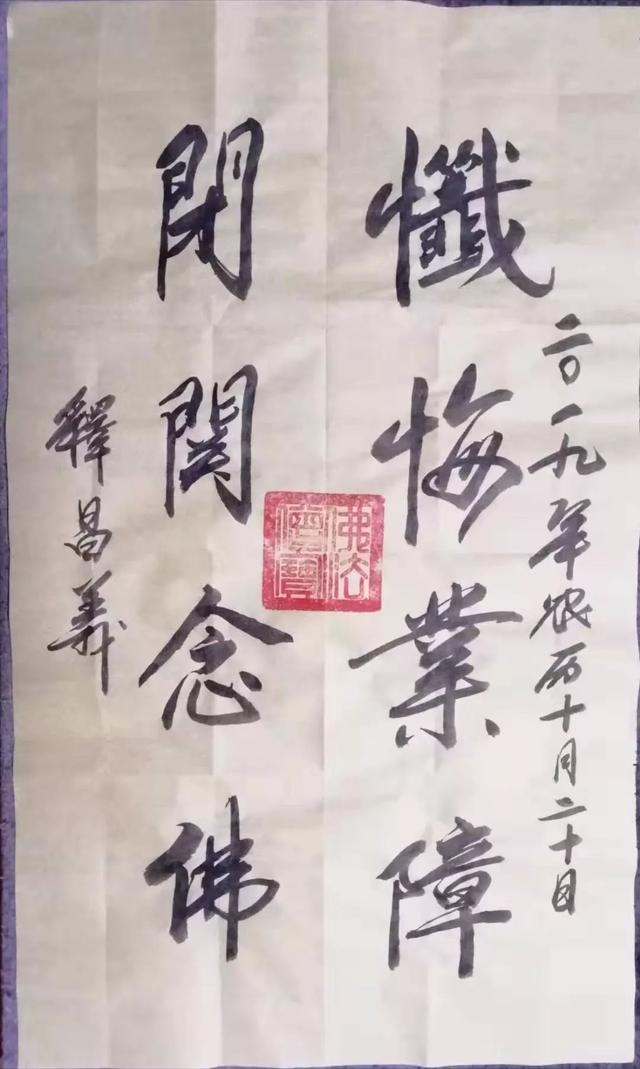 二〇一九年农历十月二十日
懺悔業障
閉関念佛
釋昌義
佛法僧寶